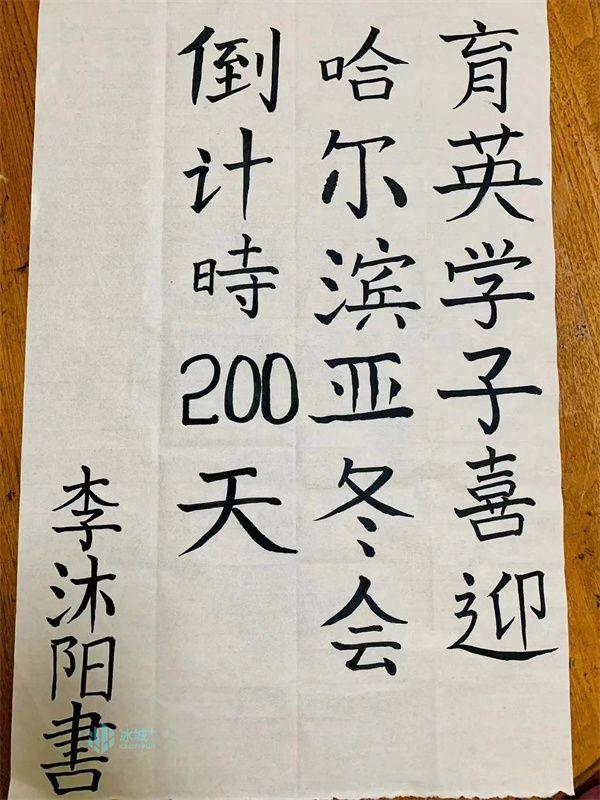 育英学子喜迎
哈尔滨亚冬会
倒计時200天
李沐阳書
冰城+